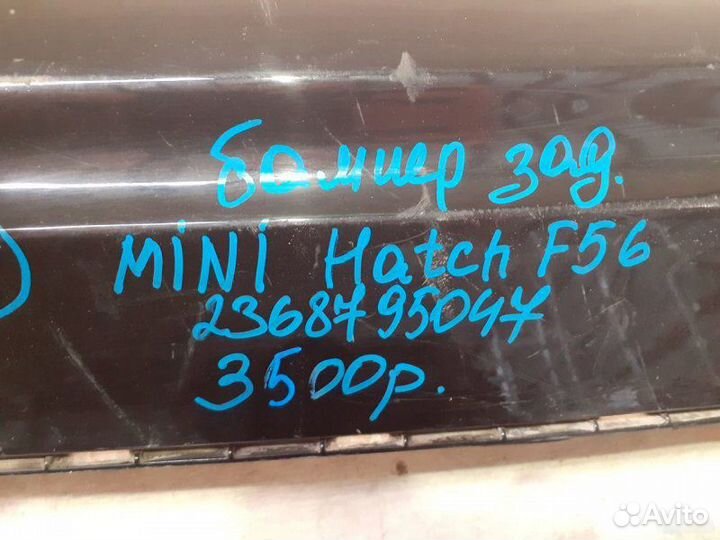 бампер зад.
MINI Hatch F56
2368795047
3500р.
Avito